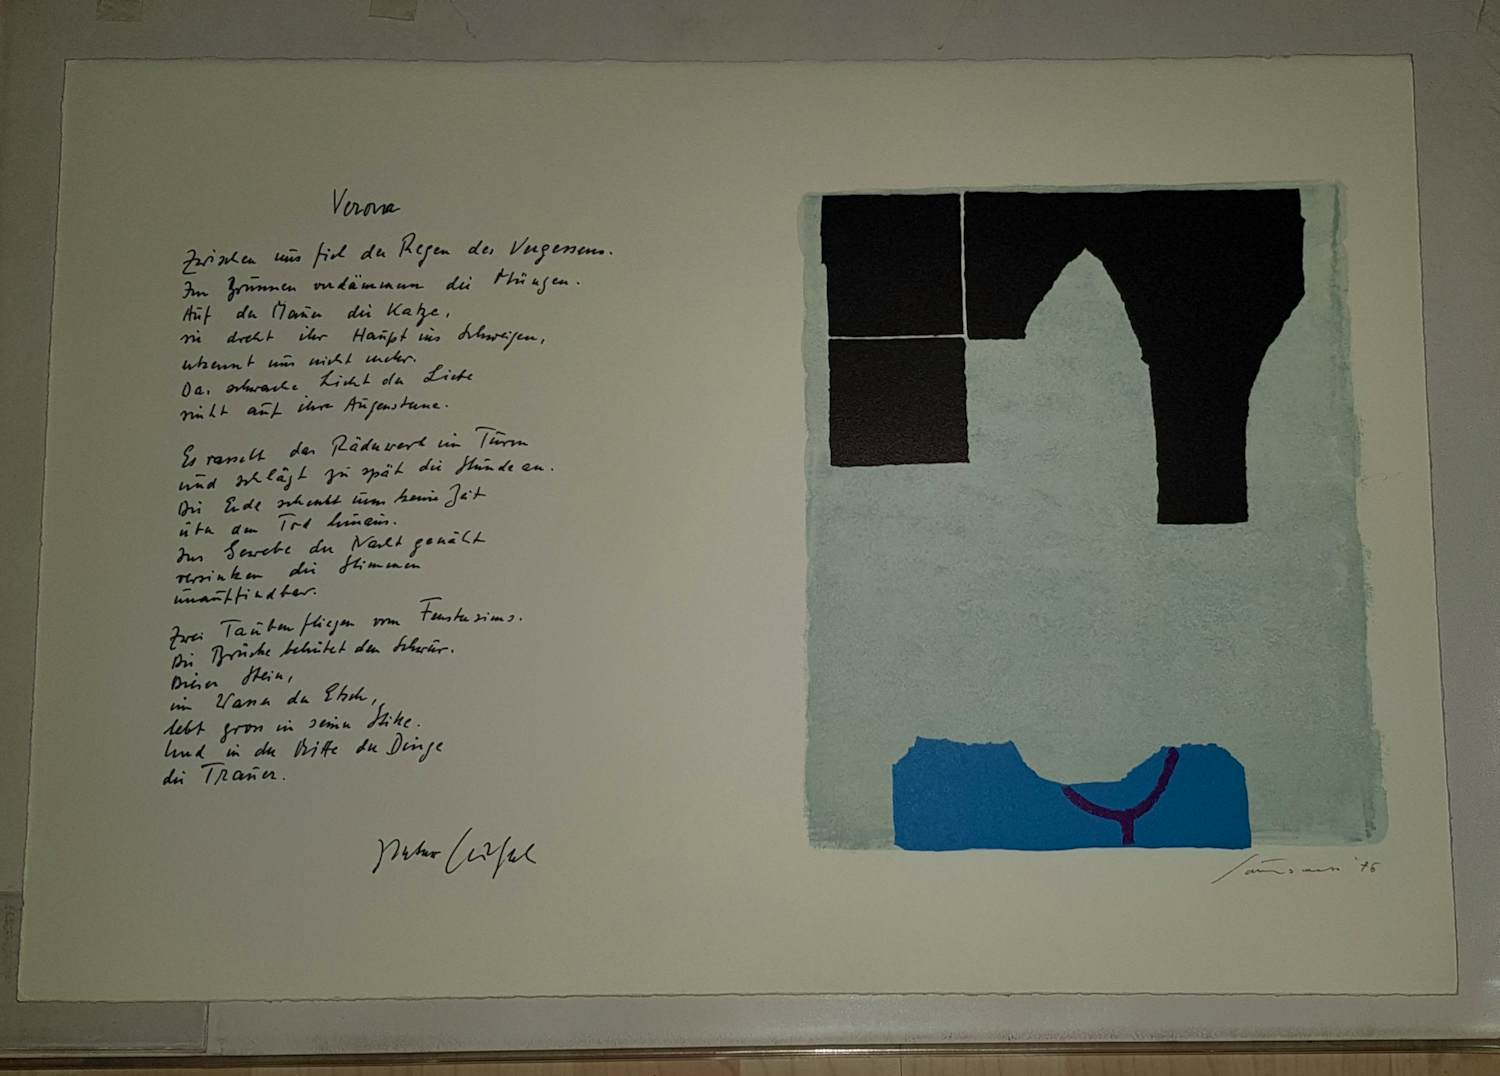 Verona
Zwischen uns fiel der Regen des Vergessens.
Im Brunnen verdämmern die Münzen.
Auf der Mauer die Katze,
sie dreht ihr Haupt ins Schweigen,
erkennt uns nicht mehr.
Das schwache Licht der Liebe
sinkt auf ihre Augensterne.
Es rasselt das Räderwerk im Turm
und schlägt zu spät die Stunde an.
Die Erde schenkt uns keine Zeit
über den Tod hinaus.
Ins Gewebe der Nacht genäht
versinken die Stimmen
unauffindbar.
Zwei Tauben fliegen vom Fenstersims.
Die Brücke behütet den Schwur.
Dieser Stein,
im Wasser der Etsch,
lebt gross in seiner Stille.
Und in der Mitte der Dinge
die Trauer.
Peter Huchel
'76